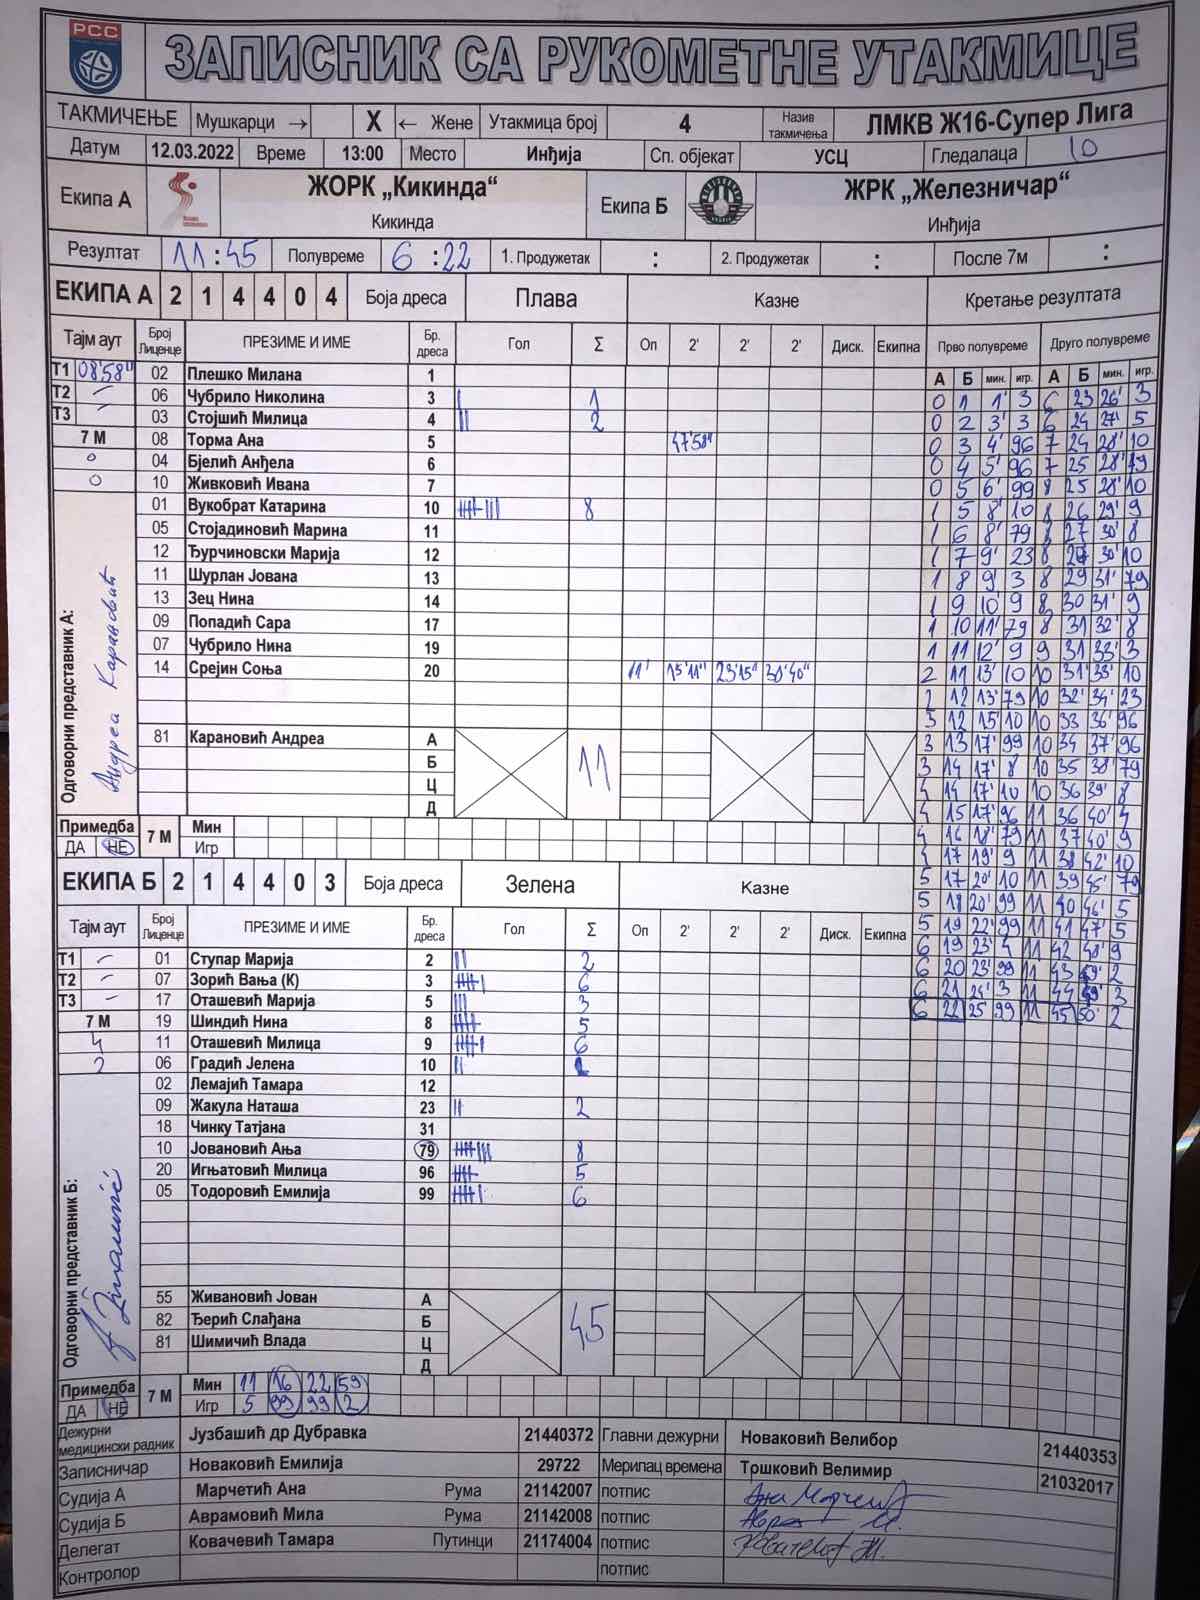 РСС
ЗАПИСНИК СА РУКОМЕТНЕ УТАКМИЦЕ
ТАКМИЧЕЊЕ Мушкарци → X ← Жене Утакмица број 4 Назив такмичења ЛМКВ Ж16-Супер Лига
Датум 12.03.2022 Време 13:00 Место Инђија Сп. објекат УСЦ Гледалаца 10
Екипа А ЖОРК „Кикинда“ Кикинда Екипа Б ЖРК „Железничар“ Инђија
Резултат 11:45 Полувреме 6:22 1. Продужетак : 2. Продужетак : После 7м :
ЕКИПА А 2 1 4 4 0 4 Боја дреса Плава Казне Кретање резултата
Тајм аут Број Лиценце ПРЕЗИМЕ И ИМЕ Бр. дреса Гол Σ Оп 2' 2' 2' Диск. Екипна Прво полувреме Друго полувреме
А Б мин. игр. А Б мин. игр.
T1 08'58" 02 Плешко Милана 1
T2 – 06 Чубрило Николина 3 | 1
T3 – 03 Стојшић Милица 4 || 2
7 М 08 Торма Ана 5 47'58"
0 04 Бјелић Анђела 6
0 10 Живковић Ивана 7
01 Вукобрат Катарина 10 8
05 Стојадиновић Марина 11
12 Ђурчиновски Марија 12
11 Шурлан Јована 13
13 Зец Нина 14
09 Попадић Сара 17
07 Чубрило Нина 19
14 Срејин Соња 20 11' 15'11" 23'15" 30'40"
81 Карановић Андреа А 11
Б
Ц
Д
Одговорни представник А: Андреа Карановић
0 1 1' 3 6 23 26' 3
0 2 3' 3 6 24 27' 5
0 3 4' 96 7 24 28' 10
0 4 5' 96 7 25 28' 79
0 5 6' 99 8 25 28' 10
1 5 8' 10 8 26 29' 9
1 6 8' 79 8 27 30' 8
1 7 9' 23 8 30' 10
1 8 9' 3 8 29 31' 79
1 9 10' 9 8 30 31' 9
1 10 11' 79 8 31 32' 8
1 11 12' 9 9 31 33' 3
2 11 13' 10 10 31' 33' 10
2 12 13' 79 10 32' 34' 23
3 12 15' 10 10 33 36' 96
3 13 17' 99 10 34 37' 96
3 14 17' 8 10 35 38' 79
4 14 17' 10 10 36 39' 8
4 15 17' 96 11 36 40' 4
4 16 18' 79 11 37 40' 9
4 17 19' 9 11 38 42' 10
5 17 20' 10 11 39 45' 79
5 18 20' 99 11 40 46' 5
5 19 22' 99 11 41 47' 5
6 19 23' 4 11 42 48' 9
6 20 23' 99 11 43 2
6 21 24' 3 11 44 3
6 22 25 99 11 45 50' 2
Примедба ДА НЕ 7 М Мин
Игр
ЕКИПА Б 2 1 4 4 0 3 Боја дреса Зелена Казне
Тајм аут Број Лиценце ПРЕЗИМЕ И ИМЕ Бр. дреса Гол Σ Оп 2' 2' 2' Диск. Екипна
T1 – 01 Ступар Марија 2 || 2
T2 – 07 Зорић Вања (К) 3 6
T3 – 17 Оташевић Марија 5 ||| 3
7 М 19 Шиндић Нина 8 5
4 11 Оташевић Милица 9 6
2 06 Градић Јелена 10 || 2
02 Лемајић Тамара 12
09 Жакула Наташа 23 || 2
18 Чинку Татјана 31
10 Јовановић Ања 79 8
20 Игњатовић Милица 96 5
05 Тодоровић Емилија 99 6
55 Живановић Јован А 45
82 Ђерић Слађана Б
81 Шимичић Влада Ц
Д
Одговорни представник Б:
Примедба ДА НЕ 7 М Мин 11 16 22 59
Игр 5 99 99 2
Дежурни медицински радник Јузбашић др Дубравка 21440372 Главни дежурни Новаковић Велибор 21440353
Записничар Новаковић Емилија 29722 Мерилац времена Тршковић Велимир 21032017
Судија А Марчетић Ана Рума 21142007 потпис
Судија Б Аврамовић Мила Рума 21142008 потпис
Делегат Ковачевић Тамара Путинци 21174004 потпис
Контролор потпис